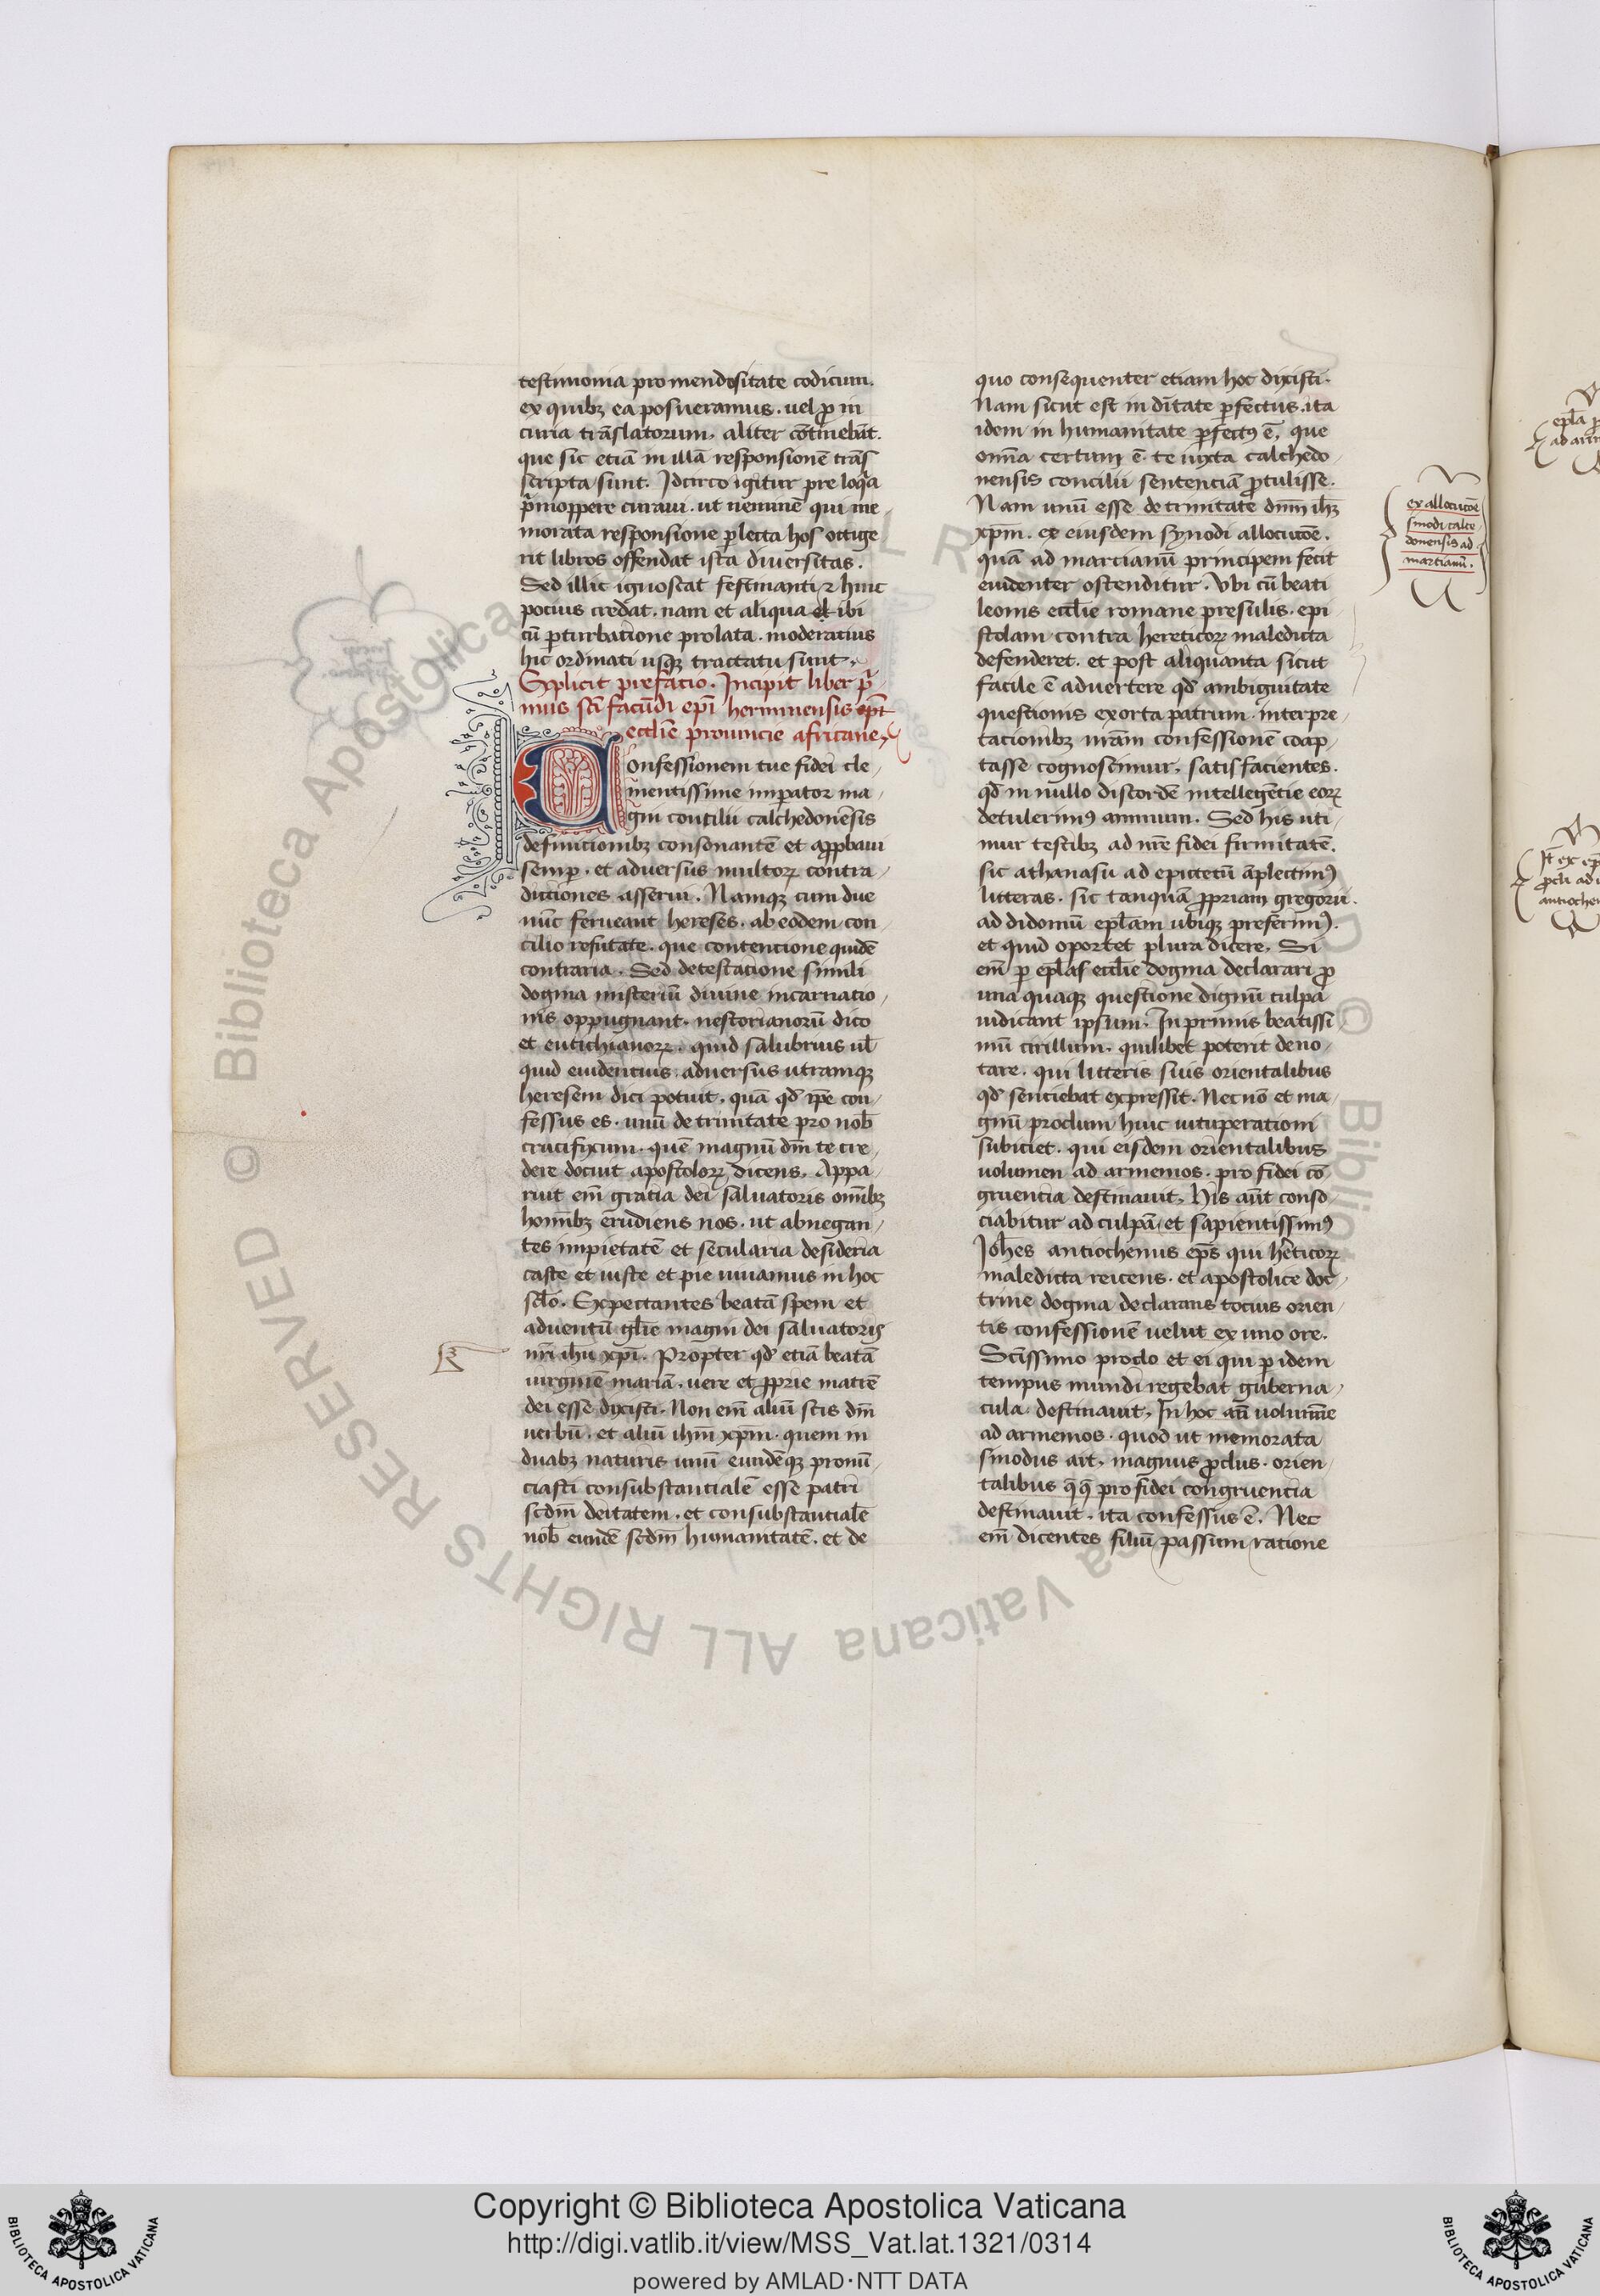 testimonia pro mendositate codicum.
ex quibꝫ ea posueramus. uel ꝓ in
curia trāslatorum. aliter cōtinebāt.
que sic etiā in illā responsionē trās
scripta sunt. Idcirco igitur pre loqͣ
p̄moppere curaui. ut neminē qui me
morata responsione ꝑlecta hos ɔtige
rit libros offendat ista diuersitas.
Sed illic ignoscat festinanti ⁊ huic
pocius credat. nam et aliqua et ibi
cū ꝑturbatione prolata. moderatius
hic ordinati usqꝫ tractatu sunt.
Explicit prefacio. Incipit liber pͥ
mus sc̄i facūdi ep̄i herminensis
eccl̄ie prouincie africane
Confessionem tue fidei cle
mentissime imꝑator ma
gni concilii calchedonēsis
definicionibꝫ consonantē et aꝓpbaui
semꝑ. et aduersus multoꝝ contra
dictiones asserui. Namqꝫ cum due
nūc ferueant hereses. ab eodem con
cilio refutate. que contencione quidē
contraria. Sed detestacione simili
dogma misteriū diuine incarnatio
nis oppugnant. nestorianorū dico
et eutichianoꝝ. quid salubrius ul̄
quid euidentius aduersus utramqꝫ
heresem dici potuit. quā qd̄ ip̄e con
fessus es. unū de trinitate pro nob̄
crucifixum. quē magnū dn̄i te cre
dere docuit apostoloꝝ dicens. Appa
ruit em̄ gratia dei saluatoris om̄ibꝫ
hom̄ibꝫ erudiens nos. ut abnegan
tes impietatē et secularia desideria
caste et iuste et pie uiuamus in hoc
scl̄o. Expectantes beatā spem et
aduentū gl̄ie magni dei saluatoris
nr̄i ihū xp̄i. Propter qd̄ etiā beatā
uirginē mariā. uere et ꝓprie matrē
dei esse dixisti. Non em̄ aliū scis dm̄
uerbū. et aliū ihm̄ xp̄m. quem in
duabꝫ naturis unū eundēqꝫ pronū
ciasti consubstancialē esse patri
scdm̄ deitatem. et consubstantialē
nob̄ eundē scdm̄ humanitatē. et de
quo consequenter etiam hoc dixisti.
Nam sicut est in dītate ꝑfectus. ita
idem in humanitate ꝑfectꝰ ē. que
om̄ia certum ē te iuxta calchedo
nensis concilii sentenciā ꝓtulisse.
Nam unū esse de trinitate dn̄m ihm̄
xp̄m. ex eiusdem synodi allocucōe.
quā ad marcianū principem fecit
euidenter ostenditur. Vbi cū beati
leonis eccl̄ie romane presulis. epi
stolam contra hereticoꝝ maledicta
defenderet. et post aliquanta sicut
facile ē aduertere qd̄ ambiguitate
questionis exorta patrum interpre
tacionibꝫ nr̄am confessionē coap
tasse cognoscimur. satisfacientes.
qd̄ in nullo discordē intellegētie eoꝝ
detulerimꝰ animum. Sed his uti
mur testibꝫ ad nr̄e fidei firmitatē.
sic athanasii ad epictetū āplectimꝰ
litteras. sic tanquā ꝓpriam gregorii.
ad didoniū epl̄am ubiqꝫ preferimꝰ.
et quid oportet plura dicere. Si
em̄ ꝑ epl̄as eccl̄ie dogma declarari ꝓ
una quaqꝫ questione dignū culpa
iudicant ipsum. In primis beatissi
mū cirillum. quilibet poterit deno
tare. qui litteris suis orientalibus
qd̄ senciebat expressit. Nec nō et ma
gnū proclum huic uituperationi
subiciet. qui eisdem orientalibus
uolumen ad armenos. pro fidei cō
gruentia destinauit. His aūt conso
ciabitur ad culpā et sapientissimꝰ
Ioh̄es antiochenus ep̄s qui h̄eticoꝝ
maledicta reicens. et apostolice doc
trine dogma declarans tocius orien
tis confessionē uelut ex uno ore.
Sc̄issimo proclo et ei qui ꝑ idem
tempus mundi regebat guberna
cula. destinauit. In hoc aū uolumīe
ad armenos. quod ut memorata
sinodus ait. magnus ꝓclus. orien
talibus q̄q̄ pro fidei congruencia
destinauit. ita confessus ē. Nec
em̄ dicentes filiū passum ratione
ex allocucōe
sinodi calce
donensis ad
martianū.
Copyright © Biblioteca Apostolica Vaticana
http://digi.vatlib.it/view/MSS_Vat.lat.1321/0314
powered by AMLAD·NTT DATA
BIBLIOTECA APOSTOLICA VATICANA
BIBLIOTECA APOSTOLICA VATICANA
© Biblioteca Apostolica Vaticana ALL RIGHTS RESERVED